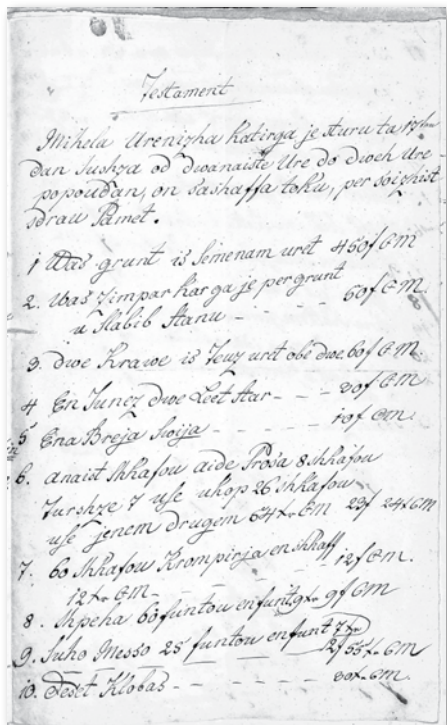 Testament
Mihela Urenizha Katirga je sturu ta 17ten
dan Sushza od dwanaiste Ure do dweh Ure
popoudan, on sashaffa toku, per soiznist
sdrau Pamet.
1 Waš grunt is Semenam urët 450f CM
2. Waš Zimpar kar ga je per grunt
u slabib Stanu - - - - 60f CM.
3. dwe Krawe is Teuz urët obe dwe 60f CM
4 En Junez dwe Leet Star - - - 20f CM
5 Ena Breja Swija - - - - - 10f CM.
6. anaist Shkafou aide Prosa 8 Shkafou
Turshze 7 use ukop 26 Shkafou
use jenem drugem 54xr CM 23f 24x CM
7. 60 Shkafou Krompirja en shkaff
12xr CM - - - - - 12f CM.
8. Shpeha 60 funtou en funt 9xr 9f CM
9. Suho Messo 25 funtou en funt 7xr
2f 55x CM
10. Deset Klobas - - - - - 30x CM.